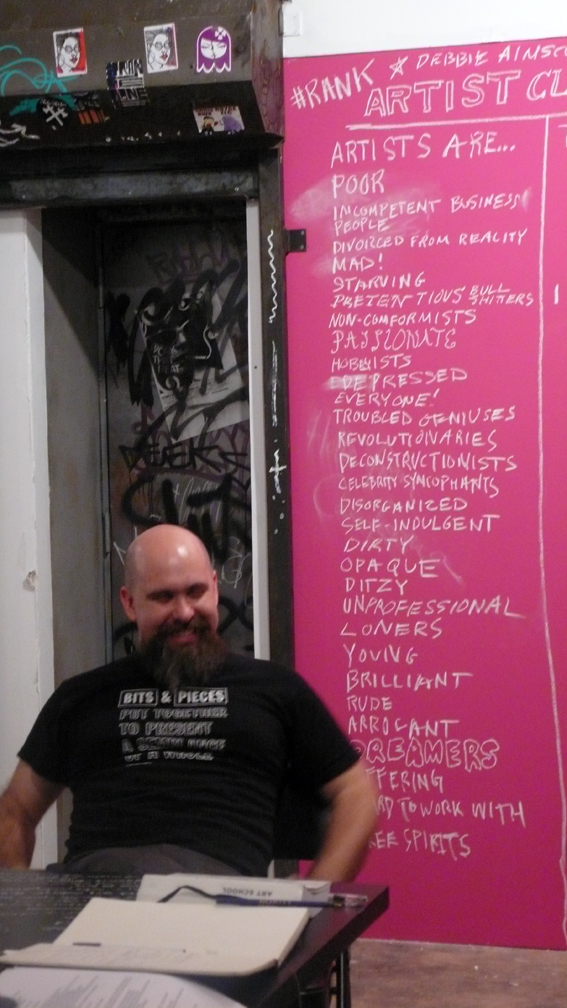 #RANK ☆ DEBBIE AINSCO
ARTIST CL
ARTISTS ARE...
POOR
INCOMPETENT BUSINESS
PEOPLE
DIVORCED FROM REALITY
MAD!
STARVING
PRETENTIOUS BULL
SHITTERS
NON-COMFORMISTS
PASSIONATE
HOBBYISTS
DEPRESSED
EVERYONE!
TROUBLED GENIUSES
REVOLUTIONARIES
DECONSTRUCTIONISTS
CELEBRITY SYNCOPHANTS
DISORGANIZED
SELF-INDULGENT
DIRTY
OPAQUE
DITZY
UNPROFESSIONAL
LONERS
YOUNG
BRILLIANT
RUDE
ARROGANT
DREAMERS
FFERING
RD TO WORK WITH
EE SPIRITS
BITS & PIECES
PUT TOGETHER
TO PRESENT
A SEMBLANCE
OF A WHOLE
ART SCHOOL